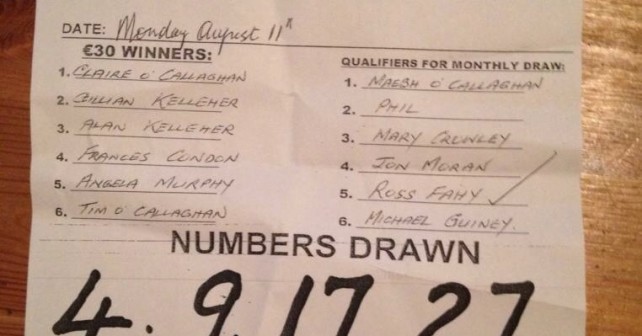 DATE: Monday August 11th
€30 WINNERS:
1. CLAIRE O'CALLAGHAN
2. GILLIAN KELLEHER
3. ALAN KELLEHER
4. FRANCES CONDON
5. ANGELA MURPHY
6. TIM O'CALLAGHAN
QUALIFIERS FOR MONTHLY DRAW:
1. MAEBH O'CALLAGHAN
2. PHIL
3. MARY CROWLEY
4. JON MORAN
5. ROSS FAHY
6. MICHAEL GUINEY.
NUMBERS DRAWN
4. 9. 17. 27